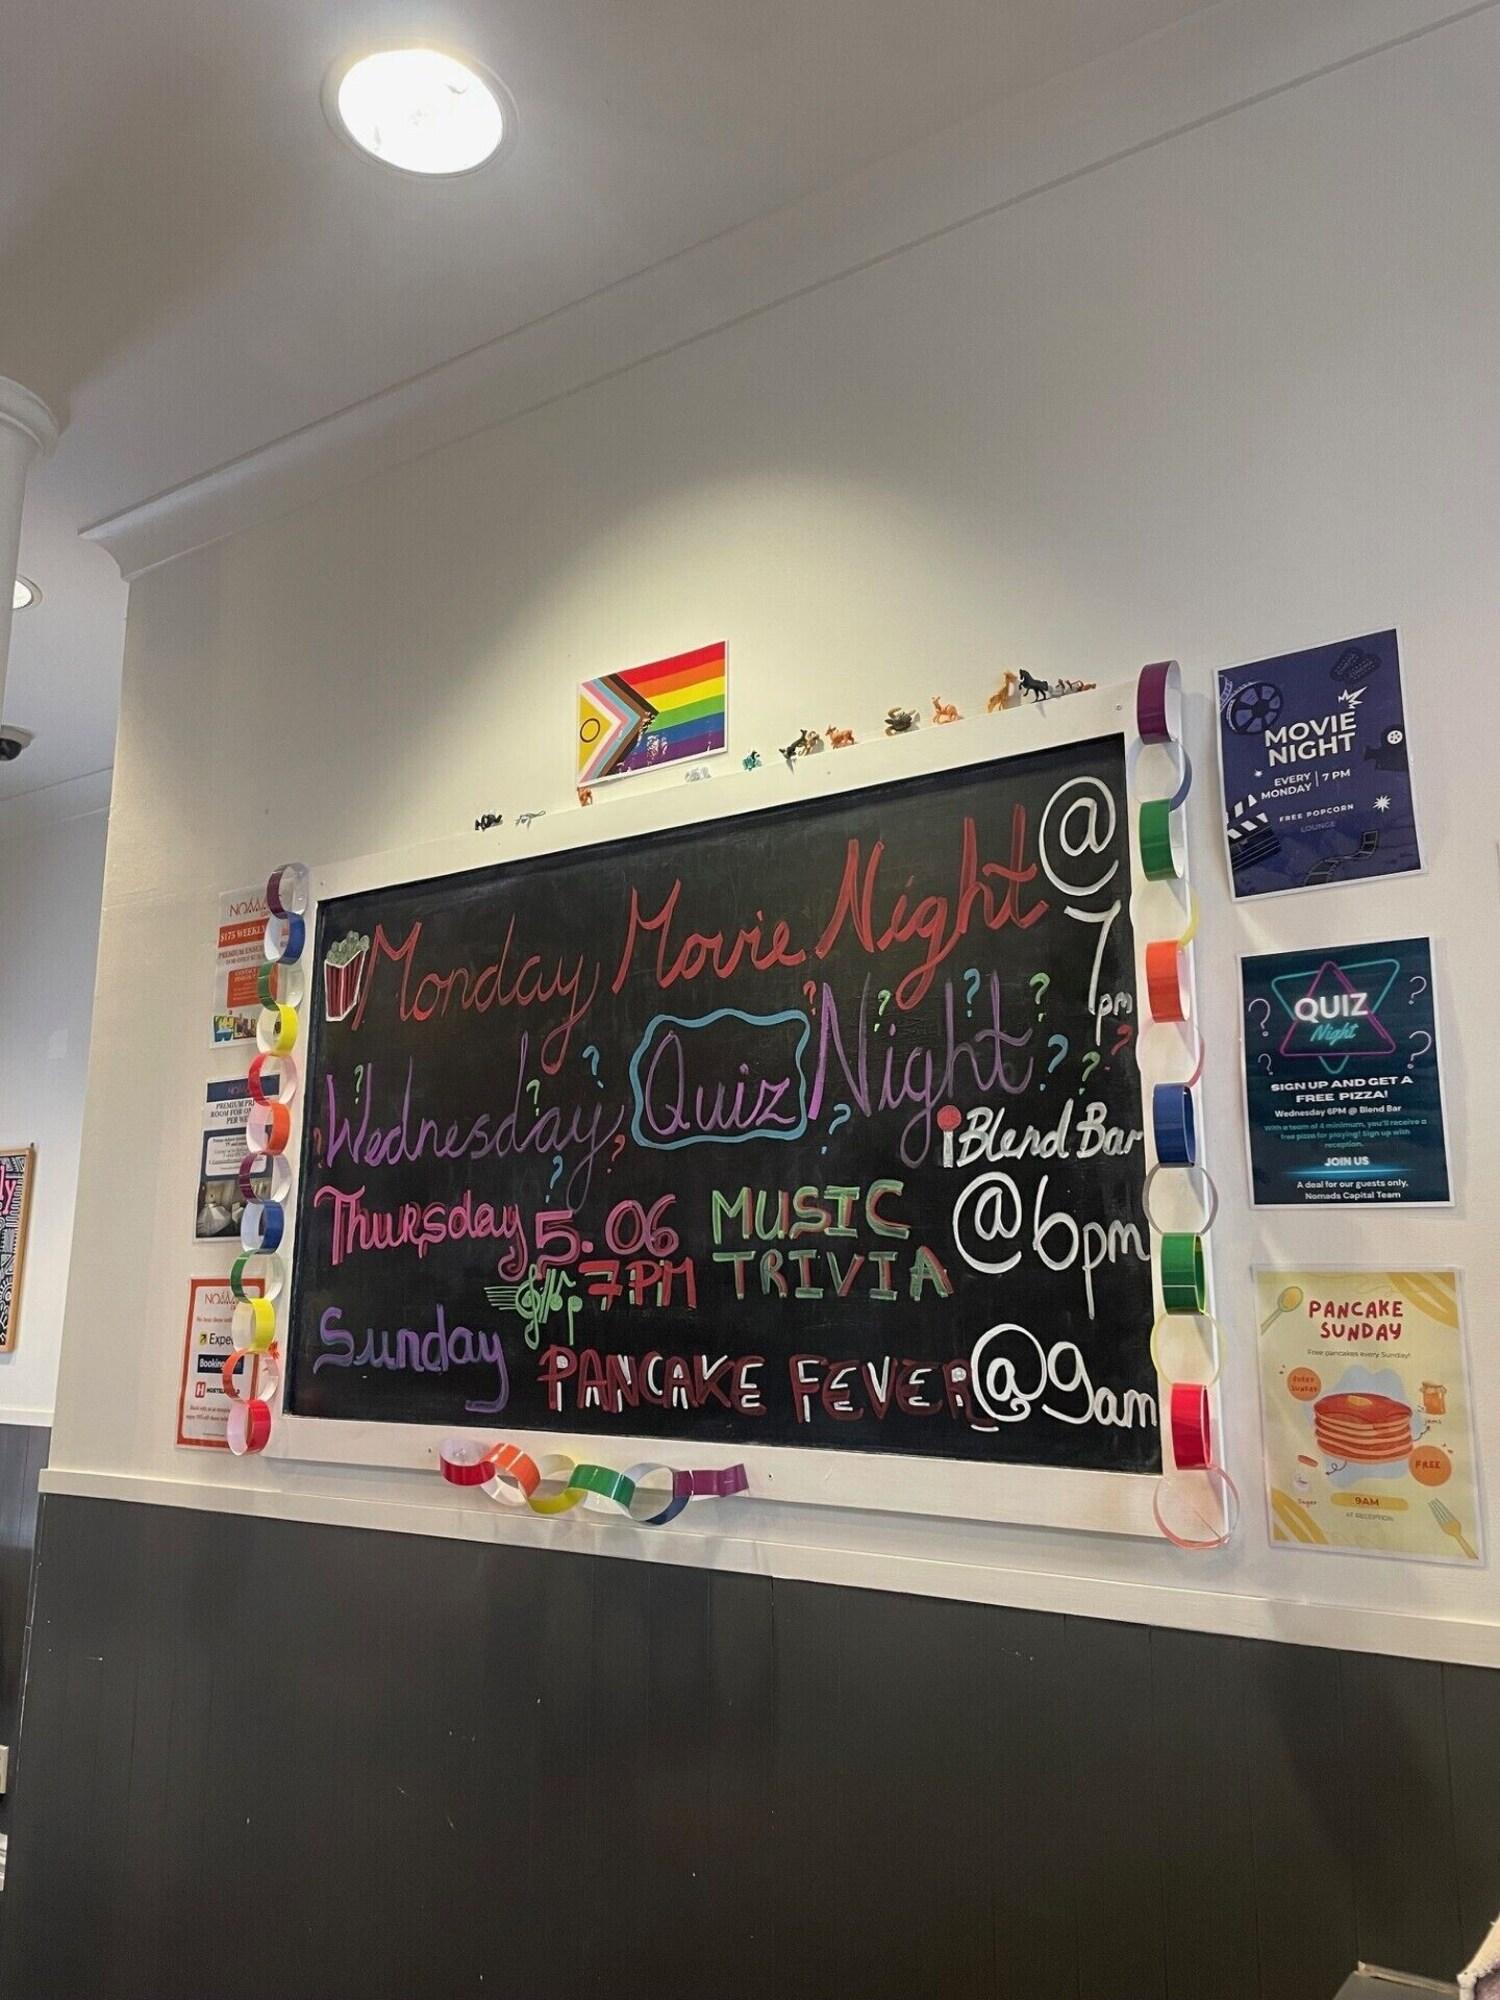 Monday Movie Night @ 7pm
Wednesday Quiz Night
Blend Bar
@ 6pm
Thursday 5.06 MUSIC
7PM TRIVIA
Sunday PANCAKE FEVER @ 9am
MOVIE
NIGHT
EVERY MONDAY | 7 PM
FREE POPCORN
LOUNGE
QUIZ
Night
SIGN UP AND GET A
FREE PIZZA!
Wednesday 6PM @ Blend Bar
With a team of 4 minimum, you'll receive a
free pizza for playing! Sign up with
reception.
JOIN US
A deal for our guests only,
Nomads Capital Team
PANCAKE
SUNDAY
Free pancakes every Sunday!
EVERY
SUNDAY
jams
FREE
Sugar
9AM
AT RECEPTION
$175 WEEKLY
PREMIUM
ROOM FOR